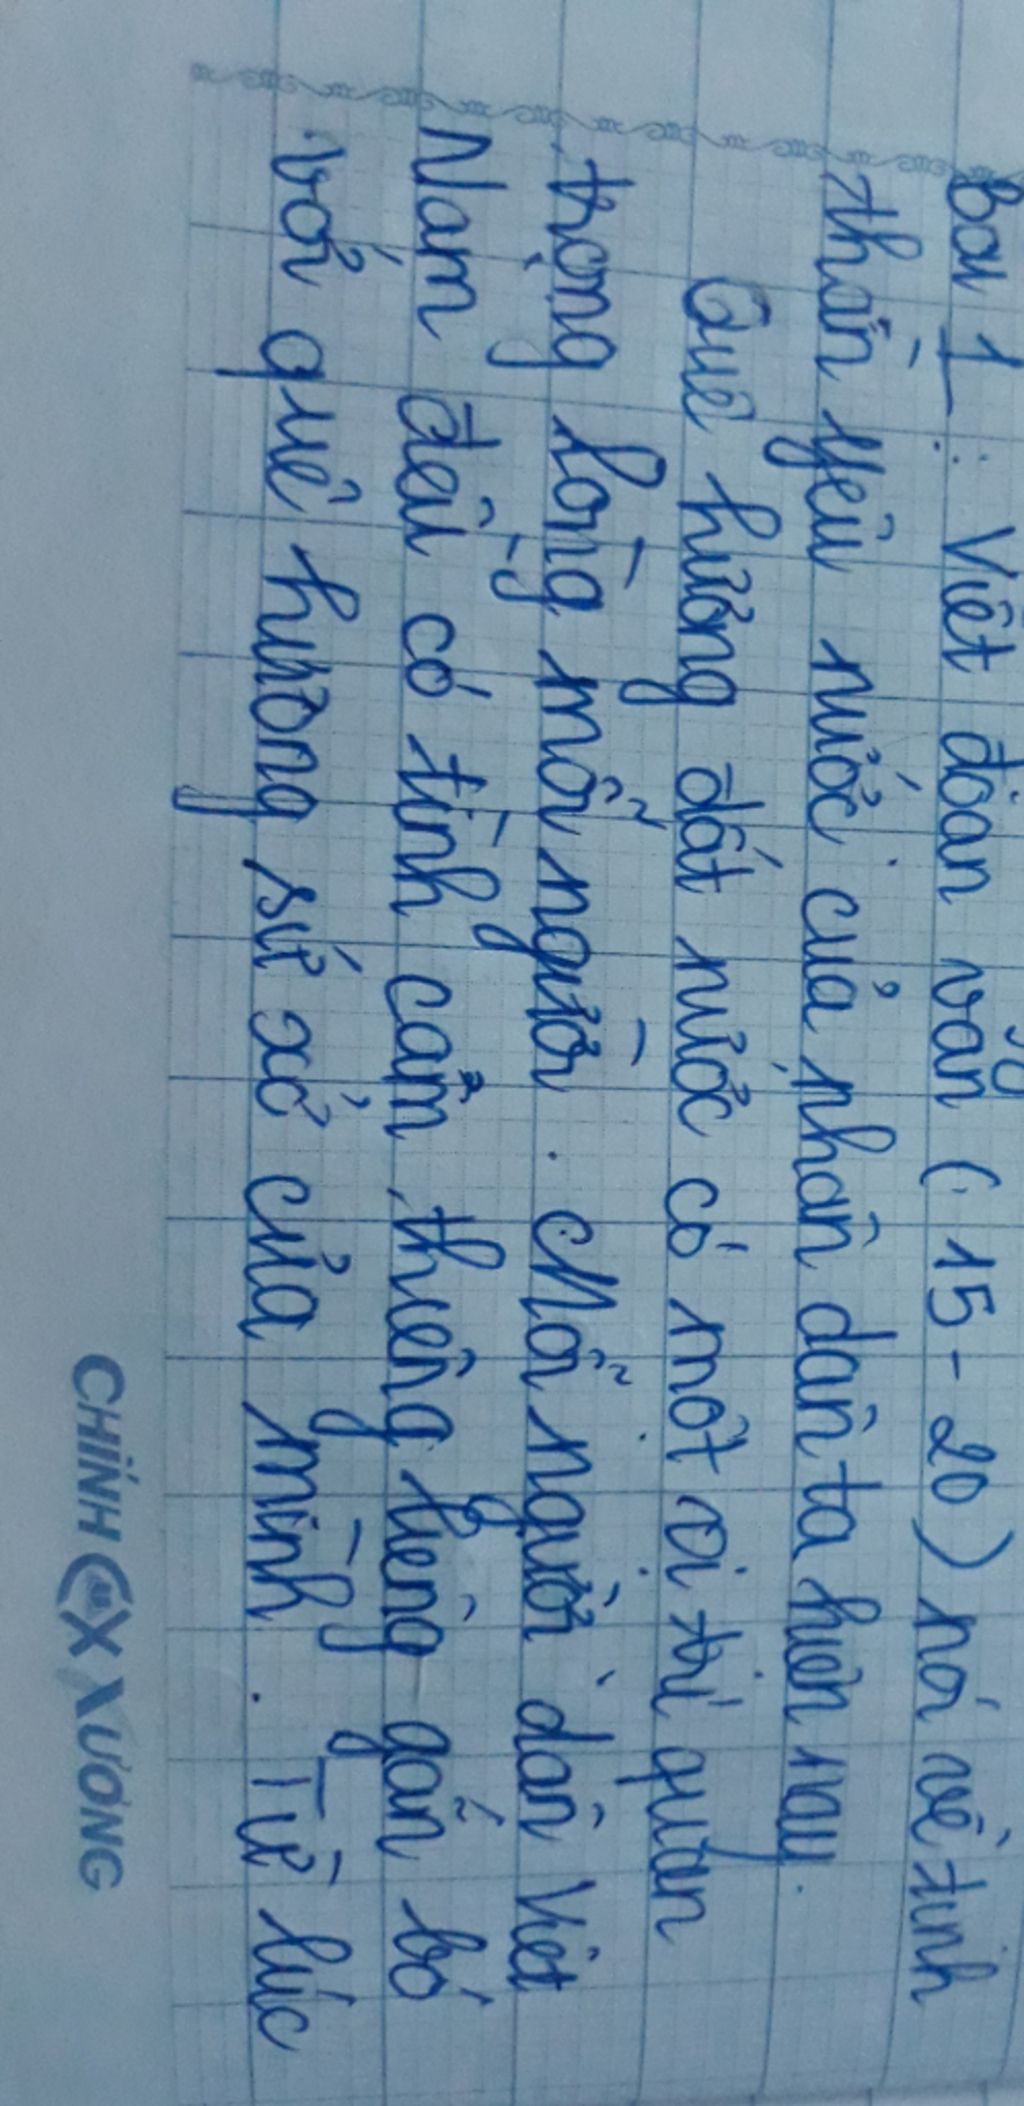 Bài 1: Viết đoạn văn (15-20) nói về tinh
thần yêu nước của nhân dân ta hiện nay.
Quê hương đất nước có một vị trí quan
trọng lòng mỗi người. Mỗi người dân Việt
Nam đều có tình cảm thiêng liêng gắn bó
với quê hương sứ xở của mình. Từ lúc
CHÍNH CX XƯƠNG